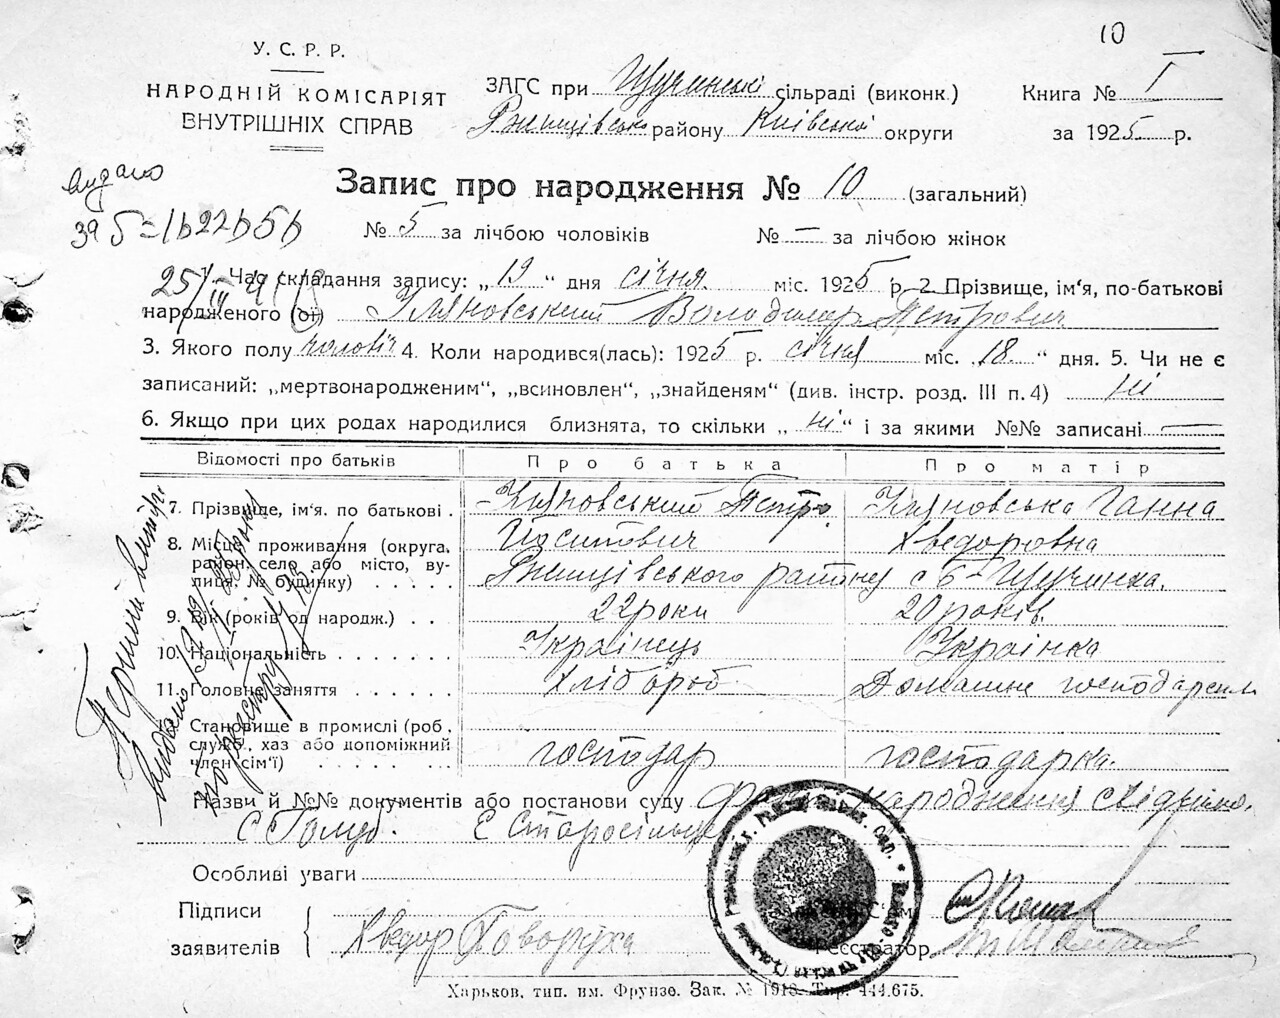 10
У. С. Р. Р.
НАРОДНІЙ КОМІСАРІЯТ
ВНУТРІШНІХ СПРАВ
ЗАГС при Щучинські сільраді (виконк.)
Ржищівсько району Київської округи
Книга № 1
за 1925 р.
видано
Запис про народження № 10 (загальний)
№ 5 за лічбою чоловіків № — за лічбою жінок
1. Час складання запису: „19“ дня січня міс. 1925 р. 2. Прізвище, ім'я, по-батькові
народженого (ої) Уляновський Володимир Петрович
3. Якого полу чоловіч 4. Коли народився(лась): 1925 р. січня міс. „18“ дня. 5. Чи не є
записаний: „мертвонародженим“, „всиновлен“, „знайденям“ (див. інстр. розд. III п. 4) ні
6. Якщо при цих родах народилися близнята, то скільки „ні“ і за якими №№ записані —
Відомості про батьків Про батька Про матір
7. Прізвище, ім'я, по батькові . Уляновський Петро Уляновська Ганна
Йосипович Хведоровна
8. Місце проживання (округа, район, село або місто, вулиця, № будинку) . . . . . Ржищівського району с Б-Щучинка.
9. Вік (років од народж.) . . 22 роки 20 років.
10. Національність . . . . . . Українець Українка
11. Головне заняття . . . . . Хлібороб Домашне
Становище в промислі (роб., служб., хаз або допоміжний член сім'ї) . . . . . . господар господарка.
Назви й №№ документів або постанови суду народження
Особливі уваги
Підписи
заявителів
Хведор Говоруха
Реєстратор
Харьков, тип. им. Фрунзе. Зак. № 1918. Тир. 444.675.